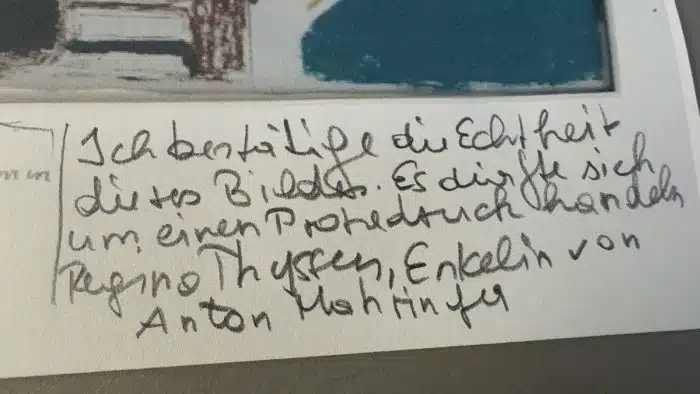 Ich bestätige die Echtheit
dieses Bildes. Es dürfte sich
um einen Probedruck handeln
Regina Thyssen, Enkelin von
Anton Mahringer